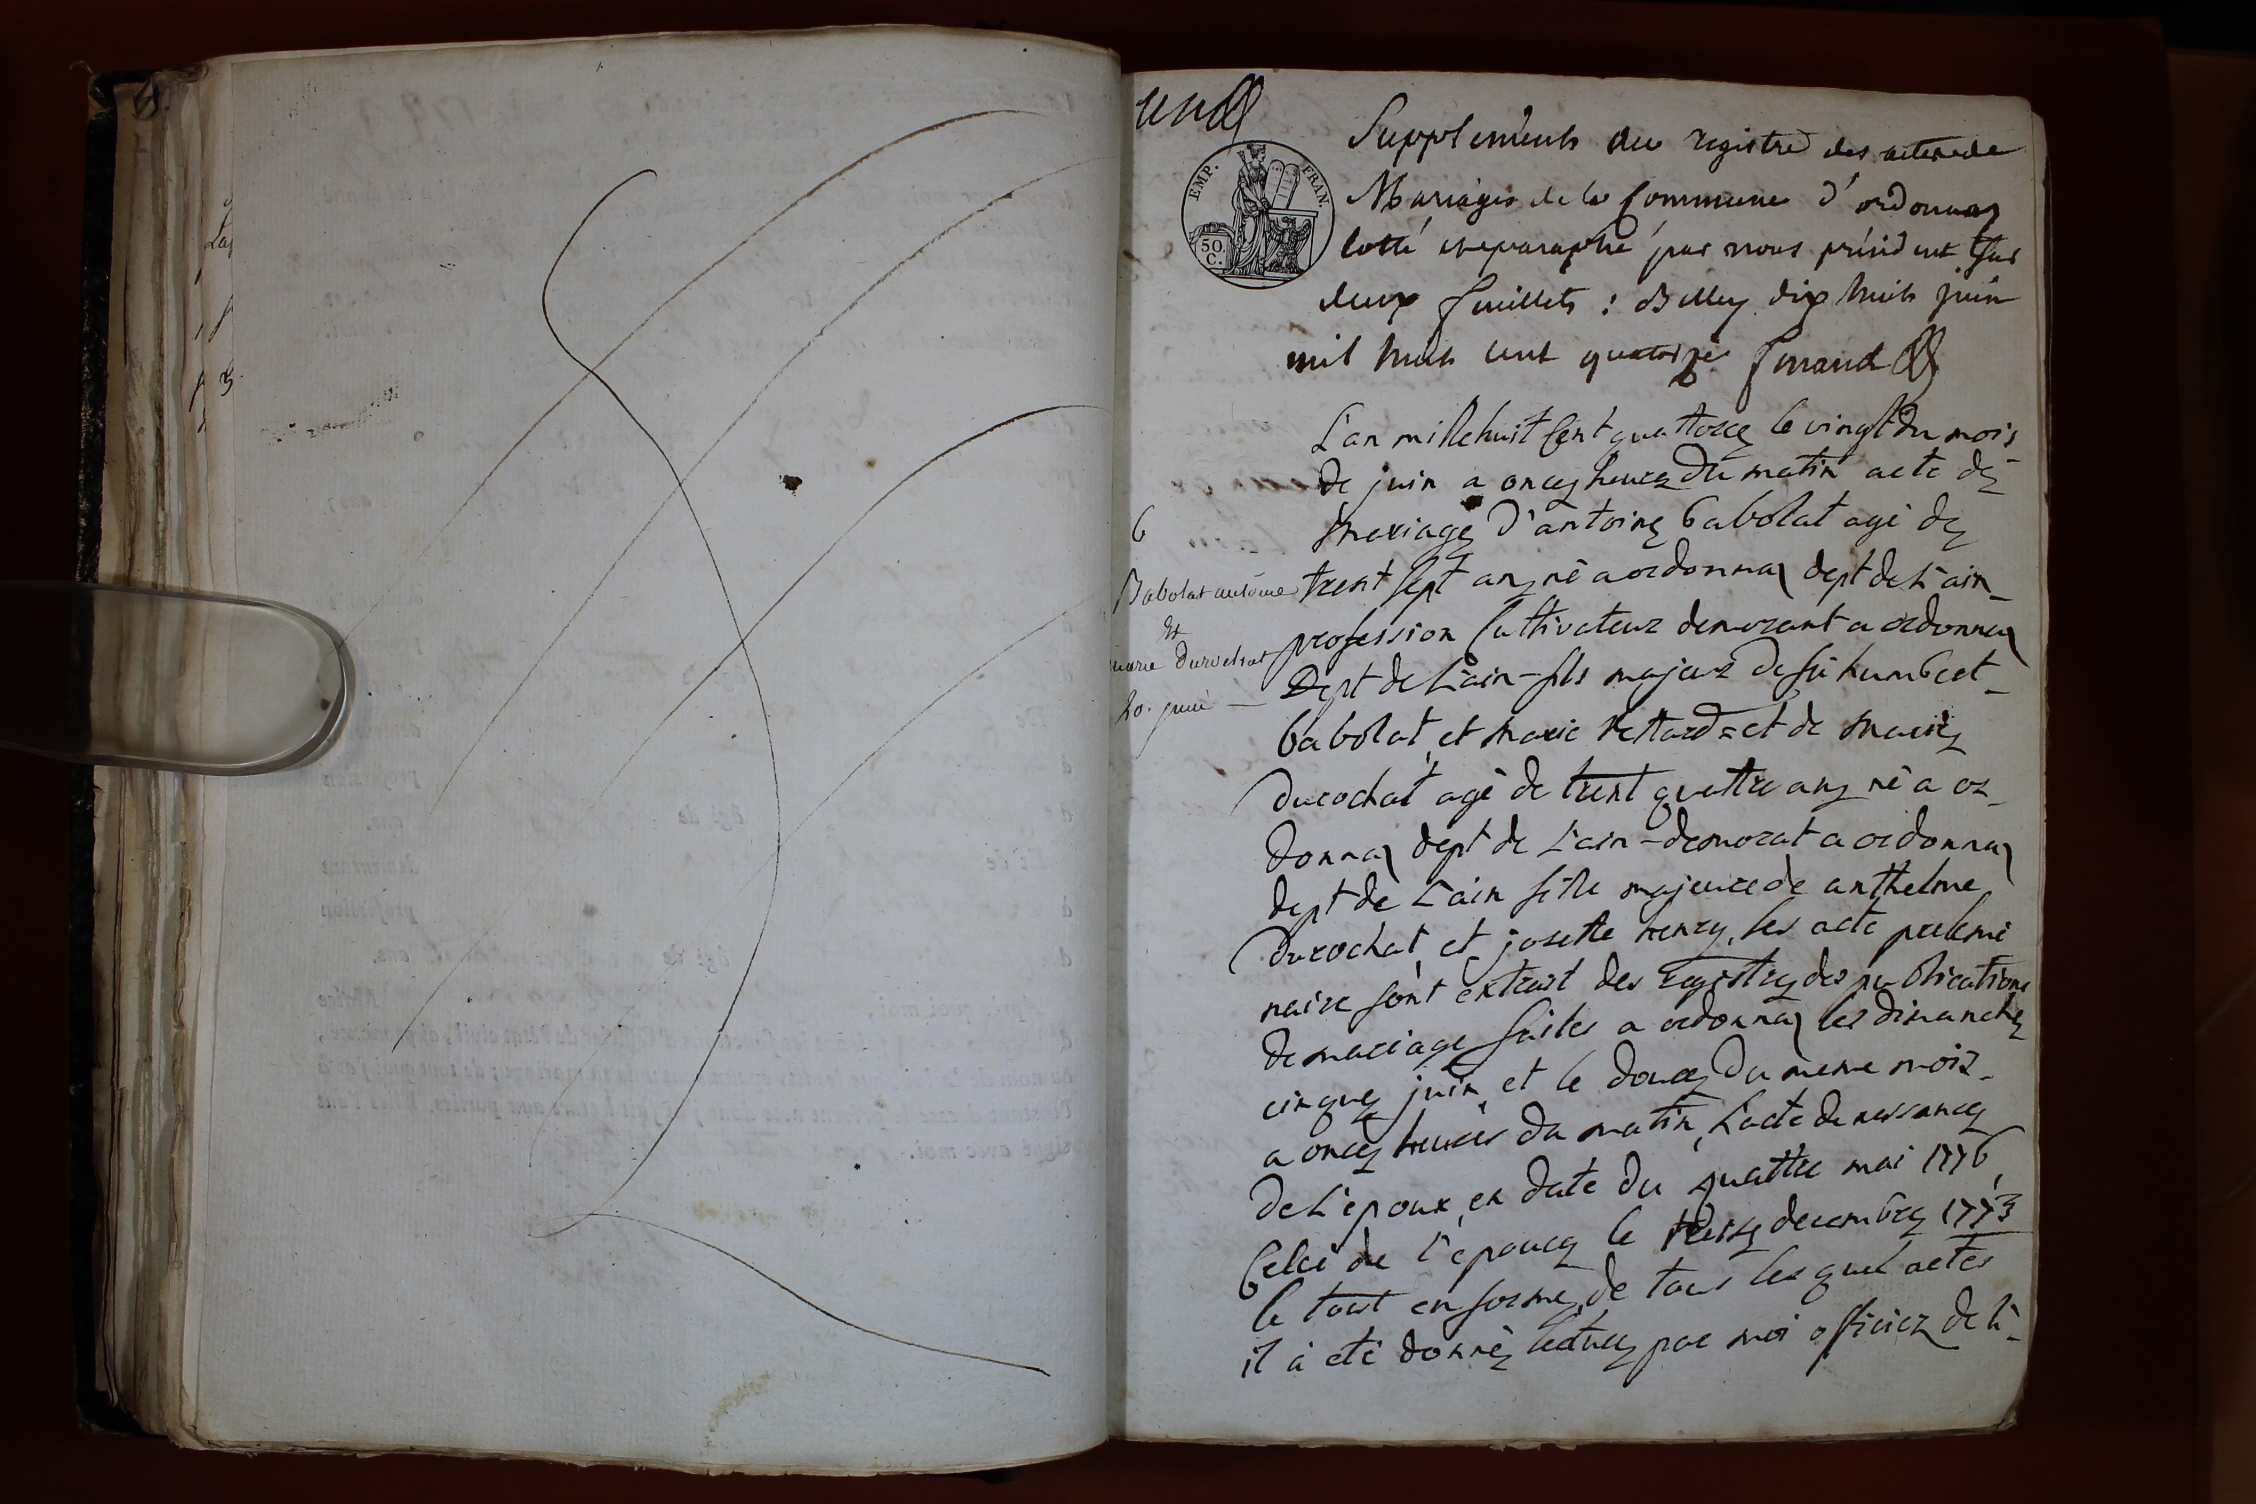 une
EMP. FRAN.
50. C.
Supplements au registre des actes de
Mariages de la Commune d'ordonnaz
cotté et paraphé par nous président sur
deux feuillets : Belley dix huit juin
mil huit cent quatorze
L'an mille huit Cent quattorze le vingt du mois
de juin a onze heures du matin acte de
mariage d'antoine babolat agé de
trent sept ans né a ordonnaz dept de L'ain
profession Cultivateur demorant a ordonnaz
Dept de L'ain - fils majeur de fû humbert
babolat, et marie = et de marie
durochat agé de trent quattre ans né a or
donnaz dept de L'ain - demorat a ordonnaz
dept de L'ain fille majeure de anthelme
durochat, et josette henry, les acte prelimi
naire sont extrait des Registres des publications
de mariage faites a ordonnaz les dimanche
cinque juin, et le douze du meme mois
a onze heures du matin, L'acte de nessance
de L'epoux, en date du quattre mai 1776,
Celui de l'epouce le decembre 1773
le tout en forme, de tous les quel actes
il à eté donné lecture par moi officier de l'è
6
Babolat antoine
et
marie Durochat
20. juin